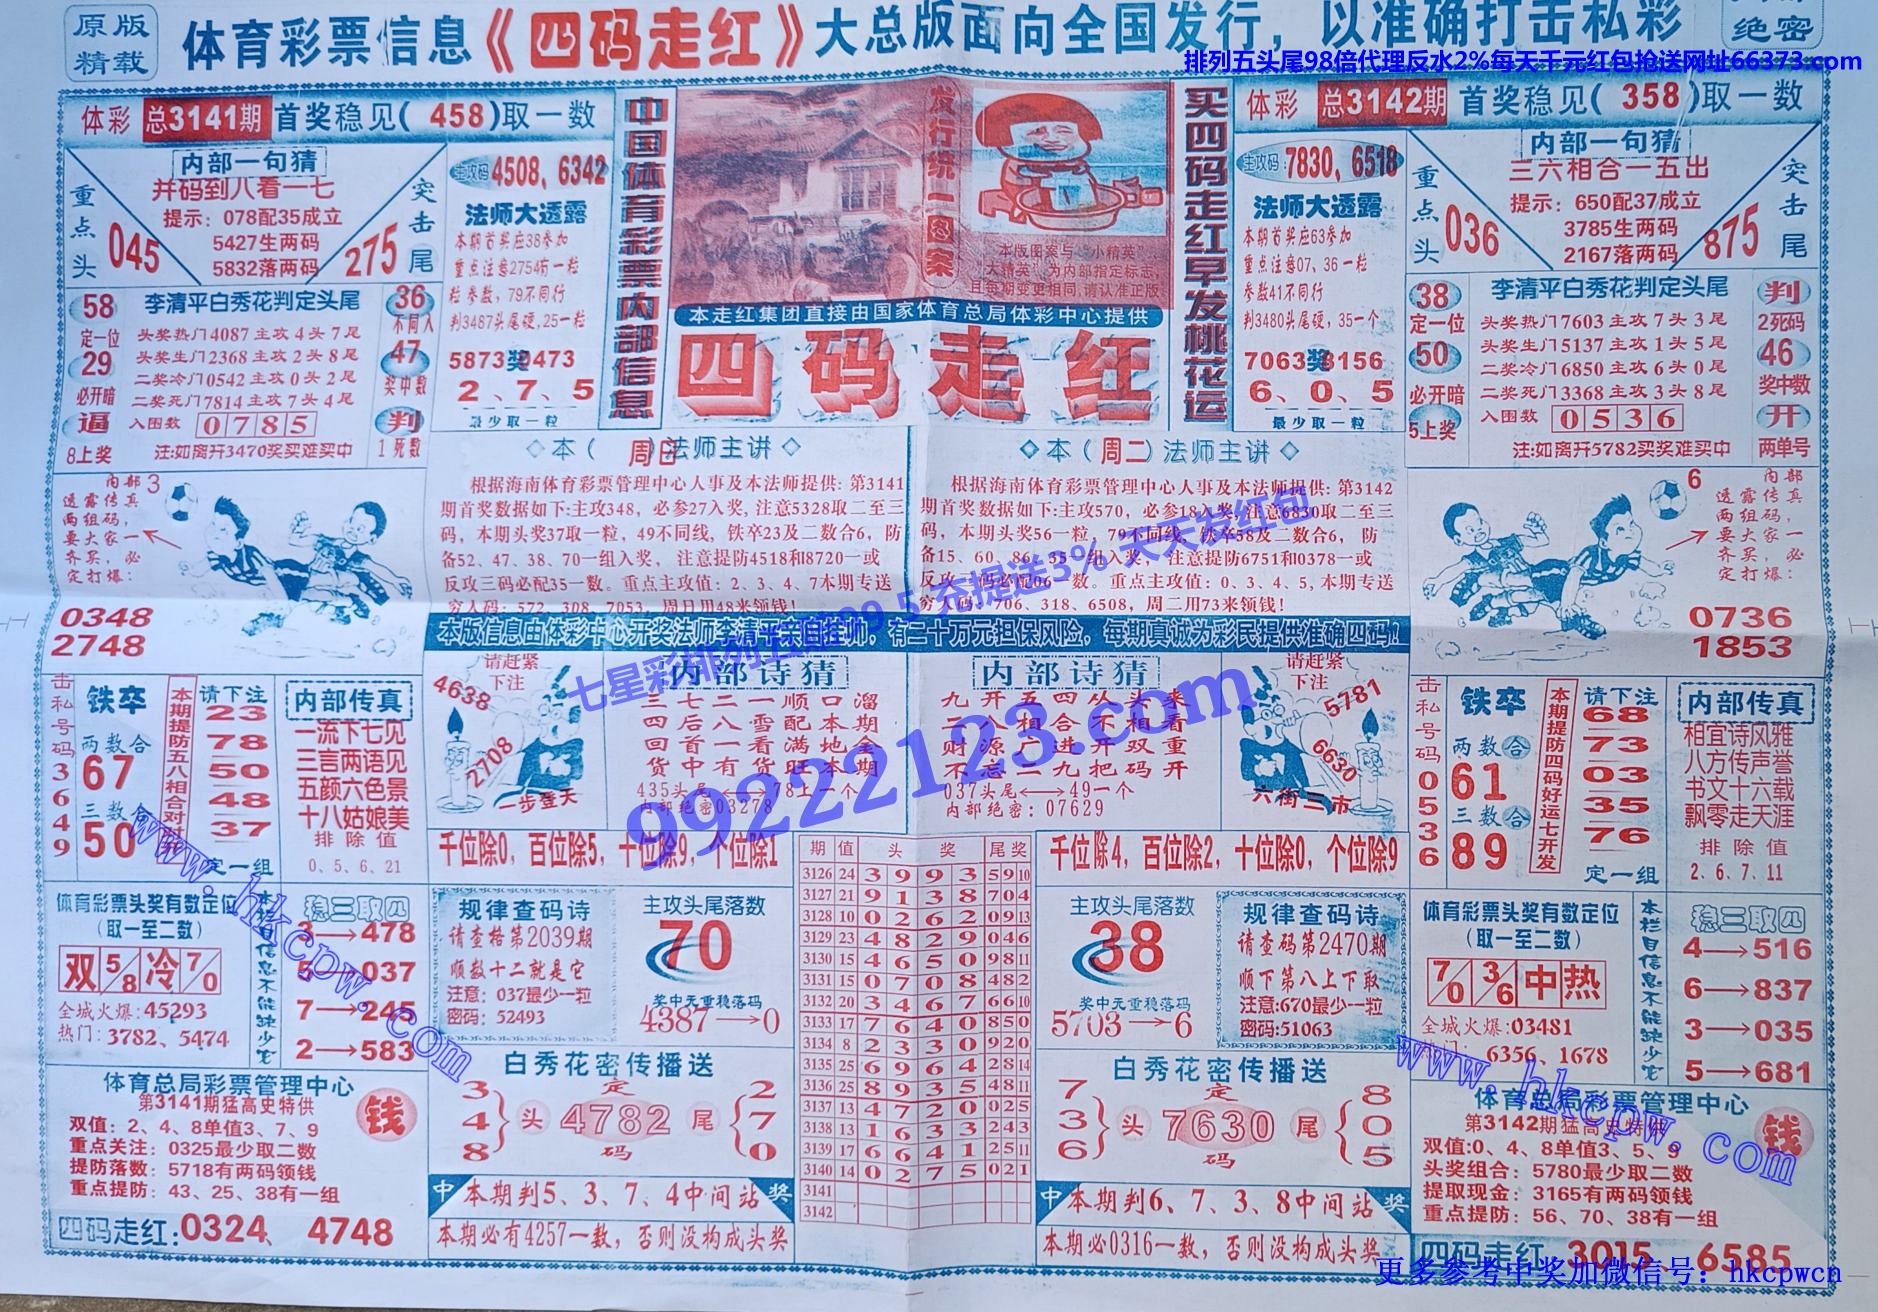 原版
精载
体育彩票信息《四码走红》大总版面向全国发行，以准确打击私彩
绝密
排列五头尾98倍代理反水2%每天千元红包抢送网址66373.com
体彩 总3141期 首奖稳见(458)取一数
内部一句猜
并码到八看一七
提示：078配35成立
5427生两码
5832落两码
重点头 045
突击尾 275
主攻码: 4508、6342
法师大透露
本期首奖应38参加
重点注意2754防一粒
粒参数，79不同行
判3487头尾硬,25一粒
5873奖0473
2、7、5
最少取一粒
58
定一位
29
必开暗
逼
8上奖
李清平白秀花判定头尾
头奖热门4087主攻4头7尾
头奖生门2368主攻2头8尾
二奖冷门0542主攻0头2尾
二奖死门7814主攻7头4尾
入围数 0785
注:如离开3470奖买难买中
36
不同入
47
奖中数
判
1死数
中国体育彩票内部信息
发行统一图案
本版图案与“小精英”
“大精英”为内部指定标志,
且每期变更相同,请认准正版
本走红集团直接由国家体育总局体彩中心提供
四码走红
买四码走红早发桃花运
体彩 总3142期 首奖稳见(358)取一数
主攻码: 7830、6518
法师大透露
本期首奖应63参加
重点注意07、36一粒
参数41不同行
判3480头尾硬，35一个
7063奖8156
6、0、5
最少取一粒
内部一句猜
三六相合一五出
提示：650配37成立
3785生两码
2167落两码
重点头 036
突击尾 875
38
定一位
50
必开暗
5上奖
李清平白秀花判定头尾
头奖热门7603主攻7头3尾
头奖生门5137主攻1头5尾
二奖冷门6850主攻6头0尾
二奖死门3368主攻3头8尾
入围数 0536
注:如离开5782买奖难买中
判
2死码
46
奖中数
开
两单号
内部
透露传真
两组码，
要大家一
齐买，必
定打爆：
3
0348
2748
◇本（周日）法师主讲◇
根据海南体育彩票管理中心人事及本法师提供: 第3141
期首奖数据如下:主攻348，必参27入奖, 注意5328取二至三
码，本期头奖37取一粒，49不同线, 铁卒23及二数合6，防
备52、47、38、70一组入奖， 注意提防4518和8720一或
反攻三码必配35一数。重点主攻值：2、3、4、7本期专送
穷人码: 572、308、7053，周日用48来领钱！
◇本（周二）法师主讲◇
根据海南体育彩票管理中心人事及本法师提供: 第3142
期首奖数据如下:主攻570，必参18入奖, 注意6830取二至三
码，本期头奖56一粒，79不同线, 铁卒58及二数合6，防
备15、60、86、35一组入奖， 注意提防6751和0378一或
反攻二码必配06一数。重点主攻值：0、3、4、5, 本期专送
穷人码: 706、318、6508，周二用73来领钱！
内部
透露传真
两组码，
要大家一
齐买，必
定打爆：
6
0736
1853
本版信息由体彩中心开奖法师李清平亲自挂帅，有二十万元担保风险，每期真诚为彩民提供准确四码！
七星彩排列五赔99.5 充提送3% 天天发红包
99222123.com
击私号码3649
铁卒
两数合
67
三数合
50
本期提防五八相合对对开
请下注
23
78
50
48
37
定一组
内部传真
一流下七见
三言两语见
五颜六色景
十八姑娘美
排除值
0、5、6、21
请赶紧
下注
4638
2708
一步登天
内部诗猜
三七二一顺口溜
四后八雪配本期
回首一看满地金
货中有货旺本期
435头尾⟷78上一个
内部绝密03278
内部诗猜
九开五四从头来
二八相合不相看
财源广进开双重
不忘二九把码开
037头尾⟷49一个
内部绝密：07629
请赶紧
下注
5781
6630
六街三市
击私号码0536
铁卒
两数合
61
三数合
89
本期提防四码好运七开发
请下注
68
73
03
35
76
定一组
内部传真
相宜诗风雅
八方传声誉
书文十六载
飘零走天涯
排除值
2、6、7、11
千位除0，百位除5，十位除9，个位除1
千位除4，百位除2，十位除0，个位除9
体育彩票头奖有数定位
（取一至二数）
双 5/8 冷 7/0
全城火爆:45293
热门：3782、5474
本栏目信息不能缺少它
稳三取四
3→478
5→037
7→245
2→583
规律查码诗
请查格第2039期
顺数十二就是它
注意：037最少一粒
密码：52493
主攻头尾落数
70
奖中无重稳落码
4387→0
期 值 头奖 尾奖
3126 24 3993 59 10
3127 21 9138 704
3128 10 0262 09 13
3129 23 4829 046
3130 15 4650 98 11
3131 15 0708 482
3132 20 3467 66 10
3133 17 7640 850
3134 8 2330 920
3135 25 6964 28 14
3136 25 8935 48 11
3137 13 4720 025
3138 13 1633 243
3139 17 6641 25 11
3140 14 0275 021
3141
3142
主攻头尾落数
38
奖中无重稳落码
5703→6
规律查码诗
请查码第2470期
顺下第八上下取
注意:670最少一粒
密码:51063
体育彩票头奖有数定位
（取一至二数）
7/0 3/6 中 热
全城火爆:03481
热门： 6356、1678
本栏目信息不能缺少它
稳三取四
4→516
6→837
3→035
5→681
体育总局彩票管理中心
第3141期猛高史特供
双值：2、4、8单值3、7、9
重点关注：0325最少取二数
提防落数：5718有两码领钱
重点提防：43、25、38有一组
钱
四码走红:0324、4748
白秀花密传播送
3
4
8
头 定 4782 码 尾
2
7
0
中 本期判5、3、7、4中间站 奖
本期必有4257一数，否则没构成头奖
白秀花密传播送
7
3
6
头 定 7630 码 尾
8
0
5
中 本期判6、7、3、8中间站 奖
本期必0316一数，否则没构成头奖
体育总局彩票管理中心
第3142期猛高史特供
双值:0、4、8单值3、5、9
头奖组合：5780最少取二数
提取现金：3165有两码领钱
重点提防：56、70、38有一组
钱
四码走红 3015、6585
www.hkcpw.com
www.hkcpw.com
更多参考中奖加微信号：hkcpwcn